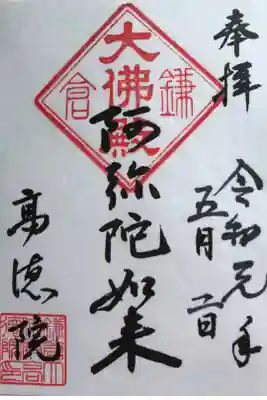 奉拝
令和元年
五月二日
大佛殿
鎌倉
阿弥陀如来
高徳院